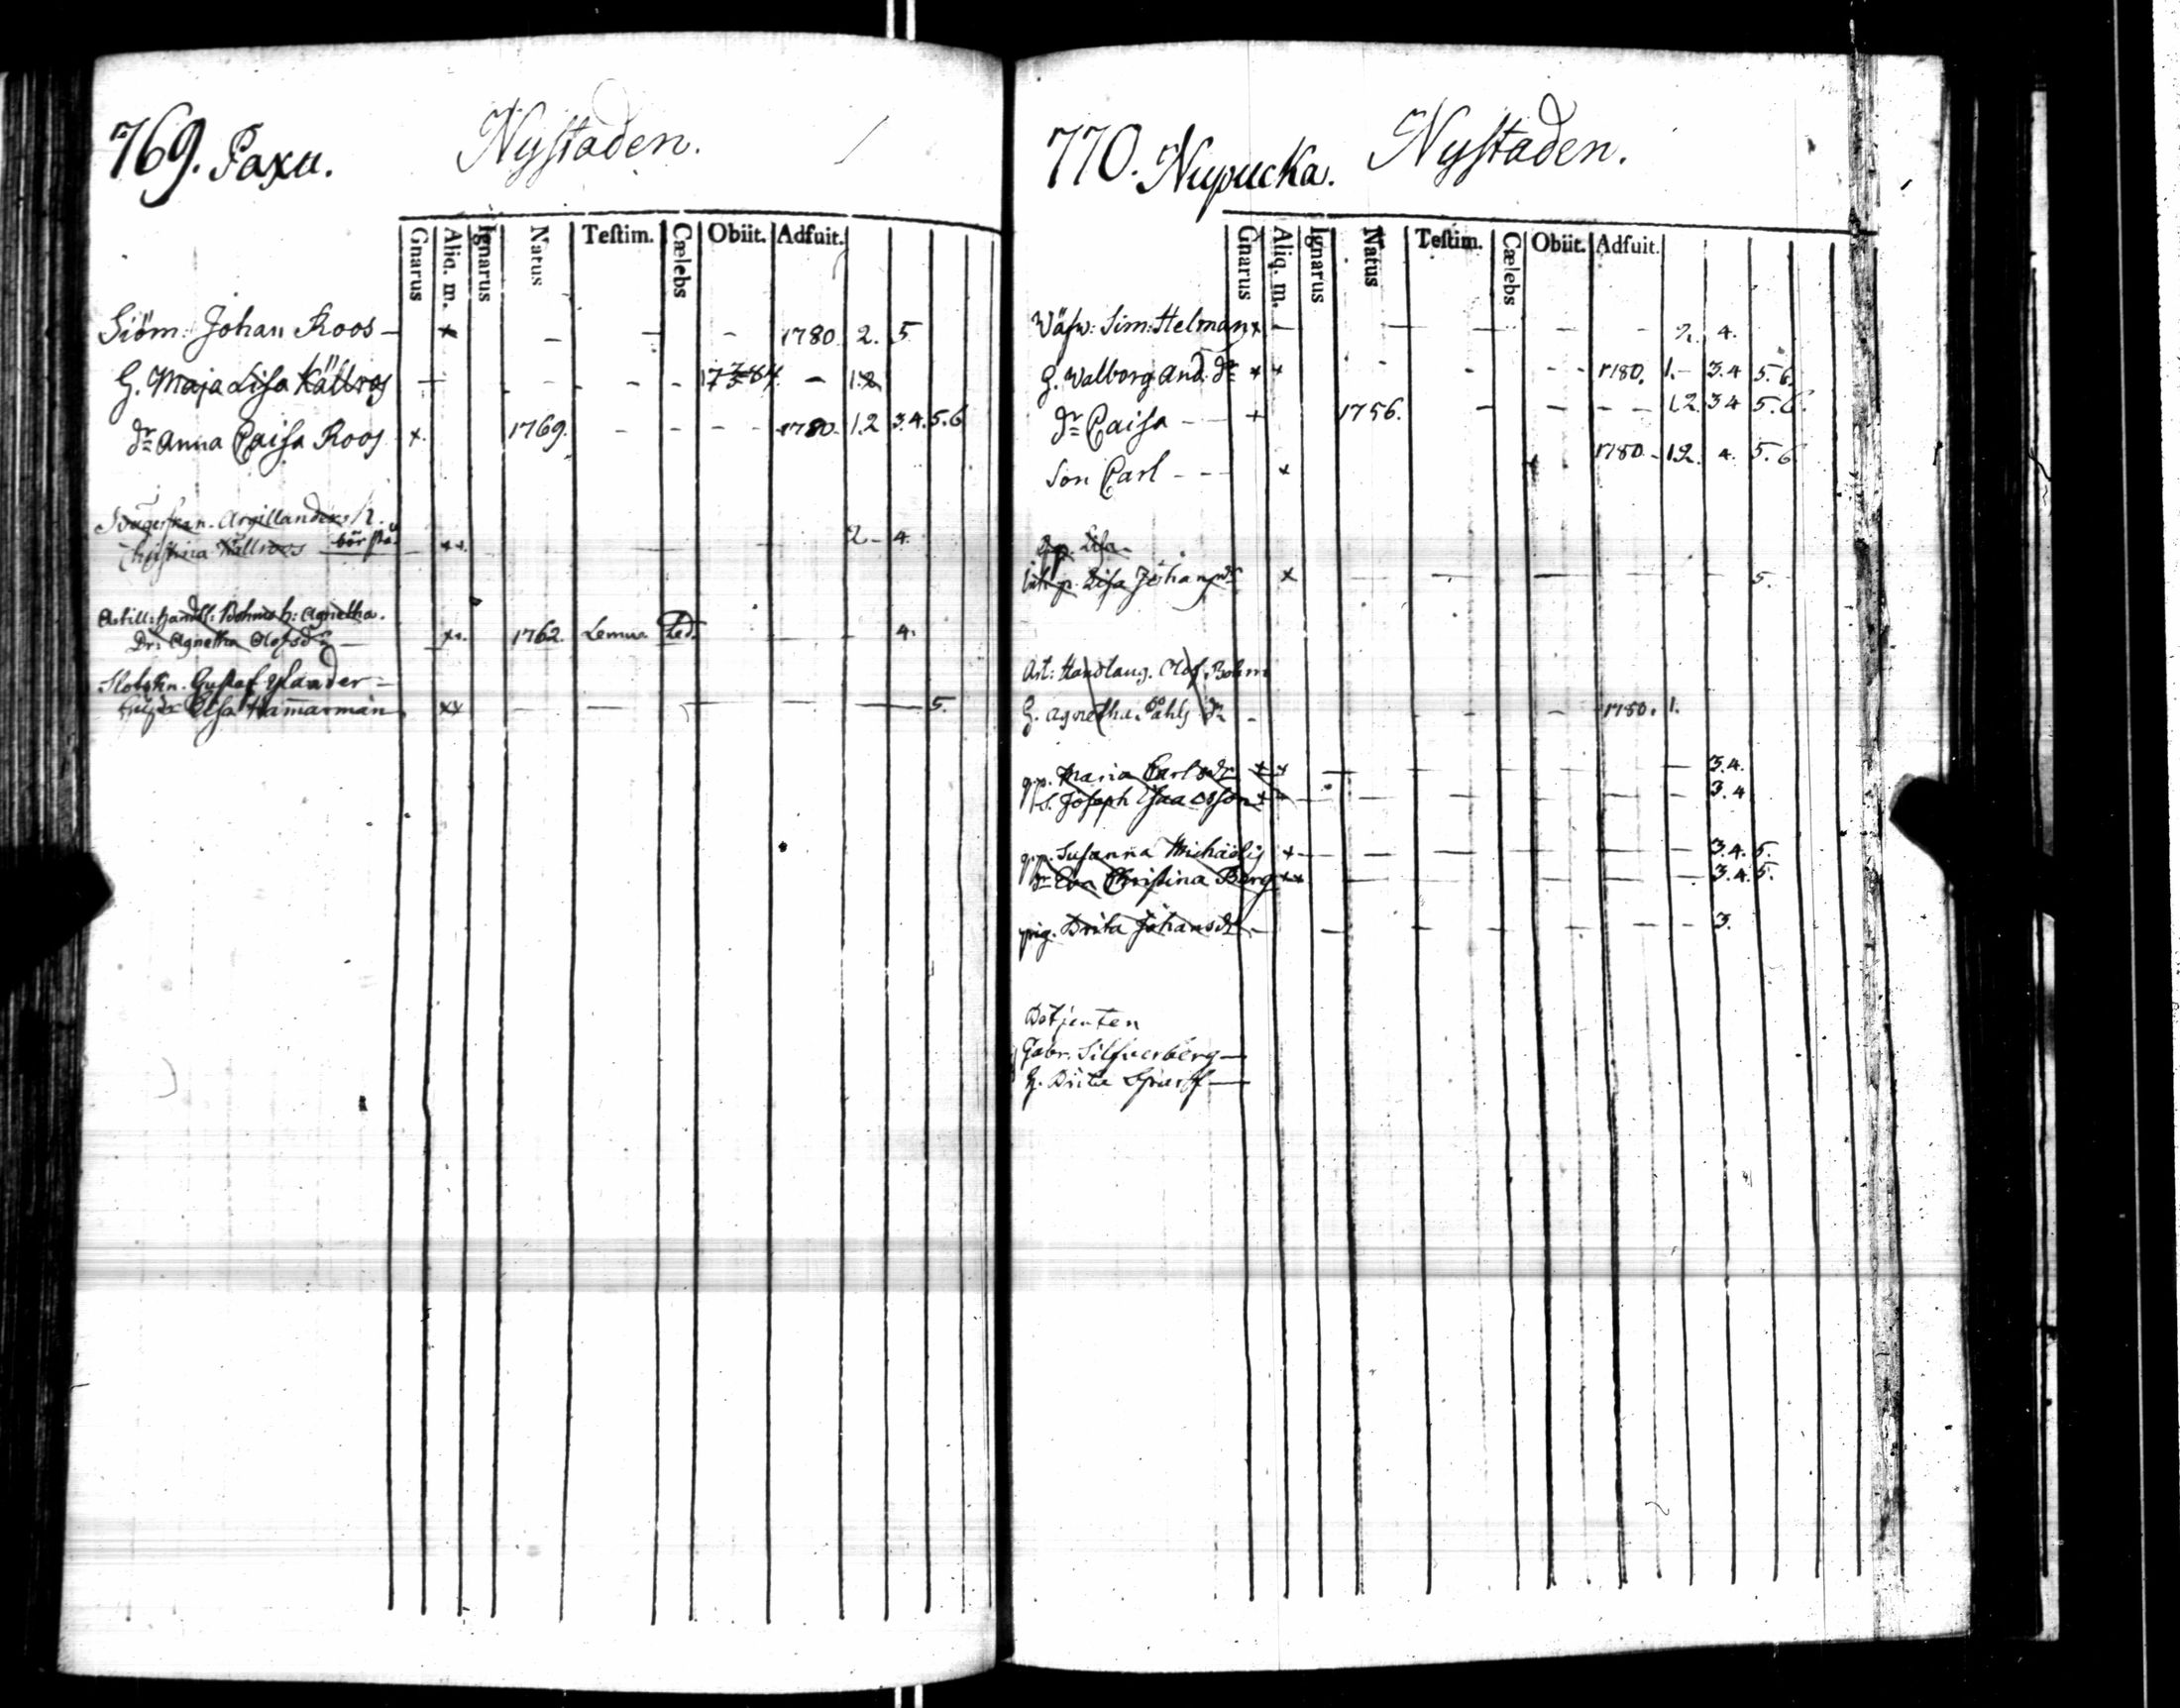 769. Paxu. Nystaden.
Gnarus Aliq. m. Ignarus Natus Testim. Cælebs Obiit. Adfuit.
Siöm: Johan Roos - x - - - 1780. 2. 5
G. Maja Lisa Källros + - - - - 17 3/5 84. - 1.2
dr Anna Caisa Roos x. 1769. - - - - 1780. 1.2 3.4. 5.6
Argillanders h.
Christina Källroos bör på xx. 2 - 4.
Artill: handl: Bohms h: Agnetha.
Dr: Agnetha Olofsdr - xx. 1762. Lemu. Led. - - - 4.
Gustaf Ylander -
Lisa Hammarman xx - - - - - 5.
770. Nupucka. Nystaden.
Gnarus Aliq. m. Ignarus Natus Testim. Cælebs Obiit. Adfuit.
Sim: Helman x - - - - - 2. 4.
G. Walborg And. dr x x - - - - 1780. 1. - 3.4 5.6.
dr Caisa - + 1756. - - - - 1.2 3 4 5.6.
Son Carl - - - x x 1780 - 12. 4. 5.6
Lisa
Lisa Johansdr x - - - - - 5.
Art: Handlang. Olof Bohm
G. Agnetha Påhls dr - - - 1780. 1.
q.p. Maria Carlsdr x x - - - - - - 3.4.
S. Joseph Isaacsson x - - - - - - - 3.4
q.p. Susanna Michaëlis x - - - - - - 3.4. 5.
dr Eva Christina Berg x x - - - - - - 3.4. 5.
pig. Brita Johansdr - - - - - - - 3.
Gabr. Silfverberg -
G. Brita -